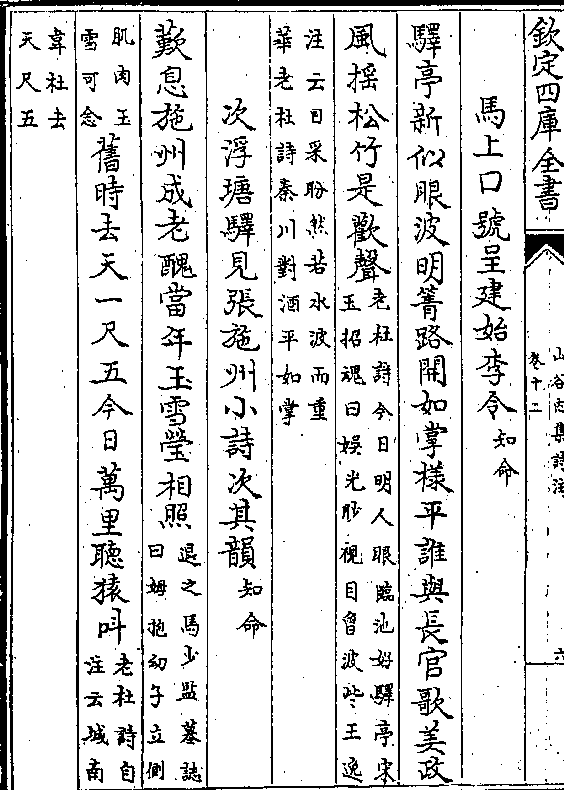 欽定四庫全書
山谷内集詩注
卷十二
六
馬上口號呈建始李令知命
驛亭新似眼波明箐路開如掌樣平誰與長官歌美政
風摇松竹是歡聲老杜詩今日明人眼臨池好驛亭宋
玉招魂曰娱光眇視目曾波些王逸
注云日采盼然若水波而重
華老杜詩秦川對酒平如掌
次浮塘驛見張施州小詩次其韻知命
歎息施州成老醜當年玉雪瑩相照退之馬少監墓誌
曰姆抱幼子立側
肌肉玉
雪可念舊時去天一尺五今日萬里聽猿呌老杜詩自
注云城南
韋杜去
天尺五